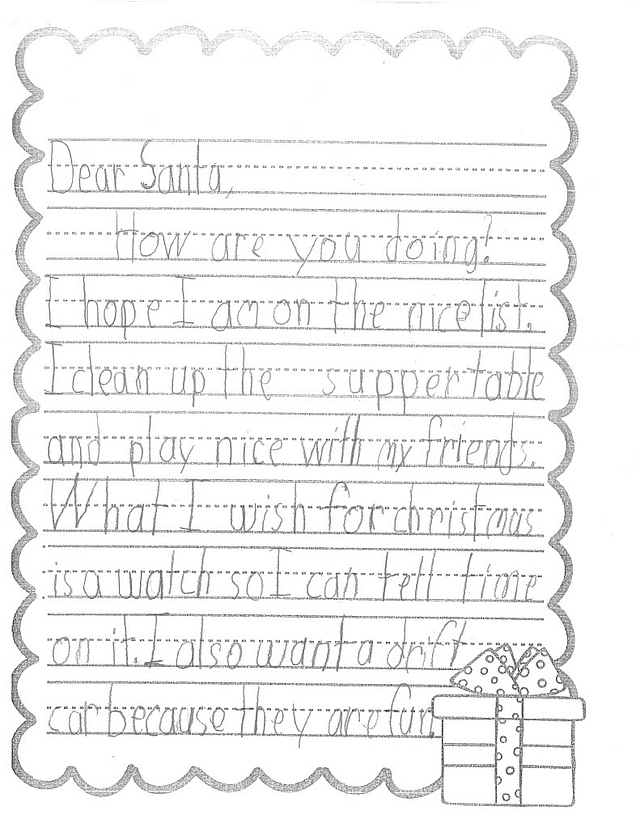 Dear Santa,
How are you doing?
I hope I am on the nice list.
I clean up the supper table
and play nice with my friends.
What I wish for christmas
is a watch so I can tell time
on it. I also want a drift
car because they are fun.